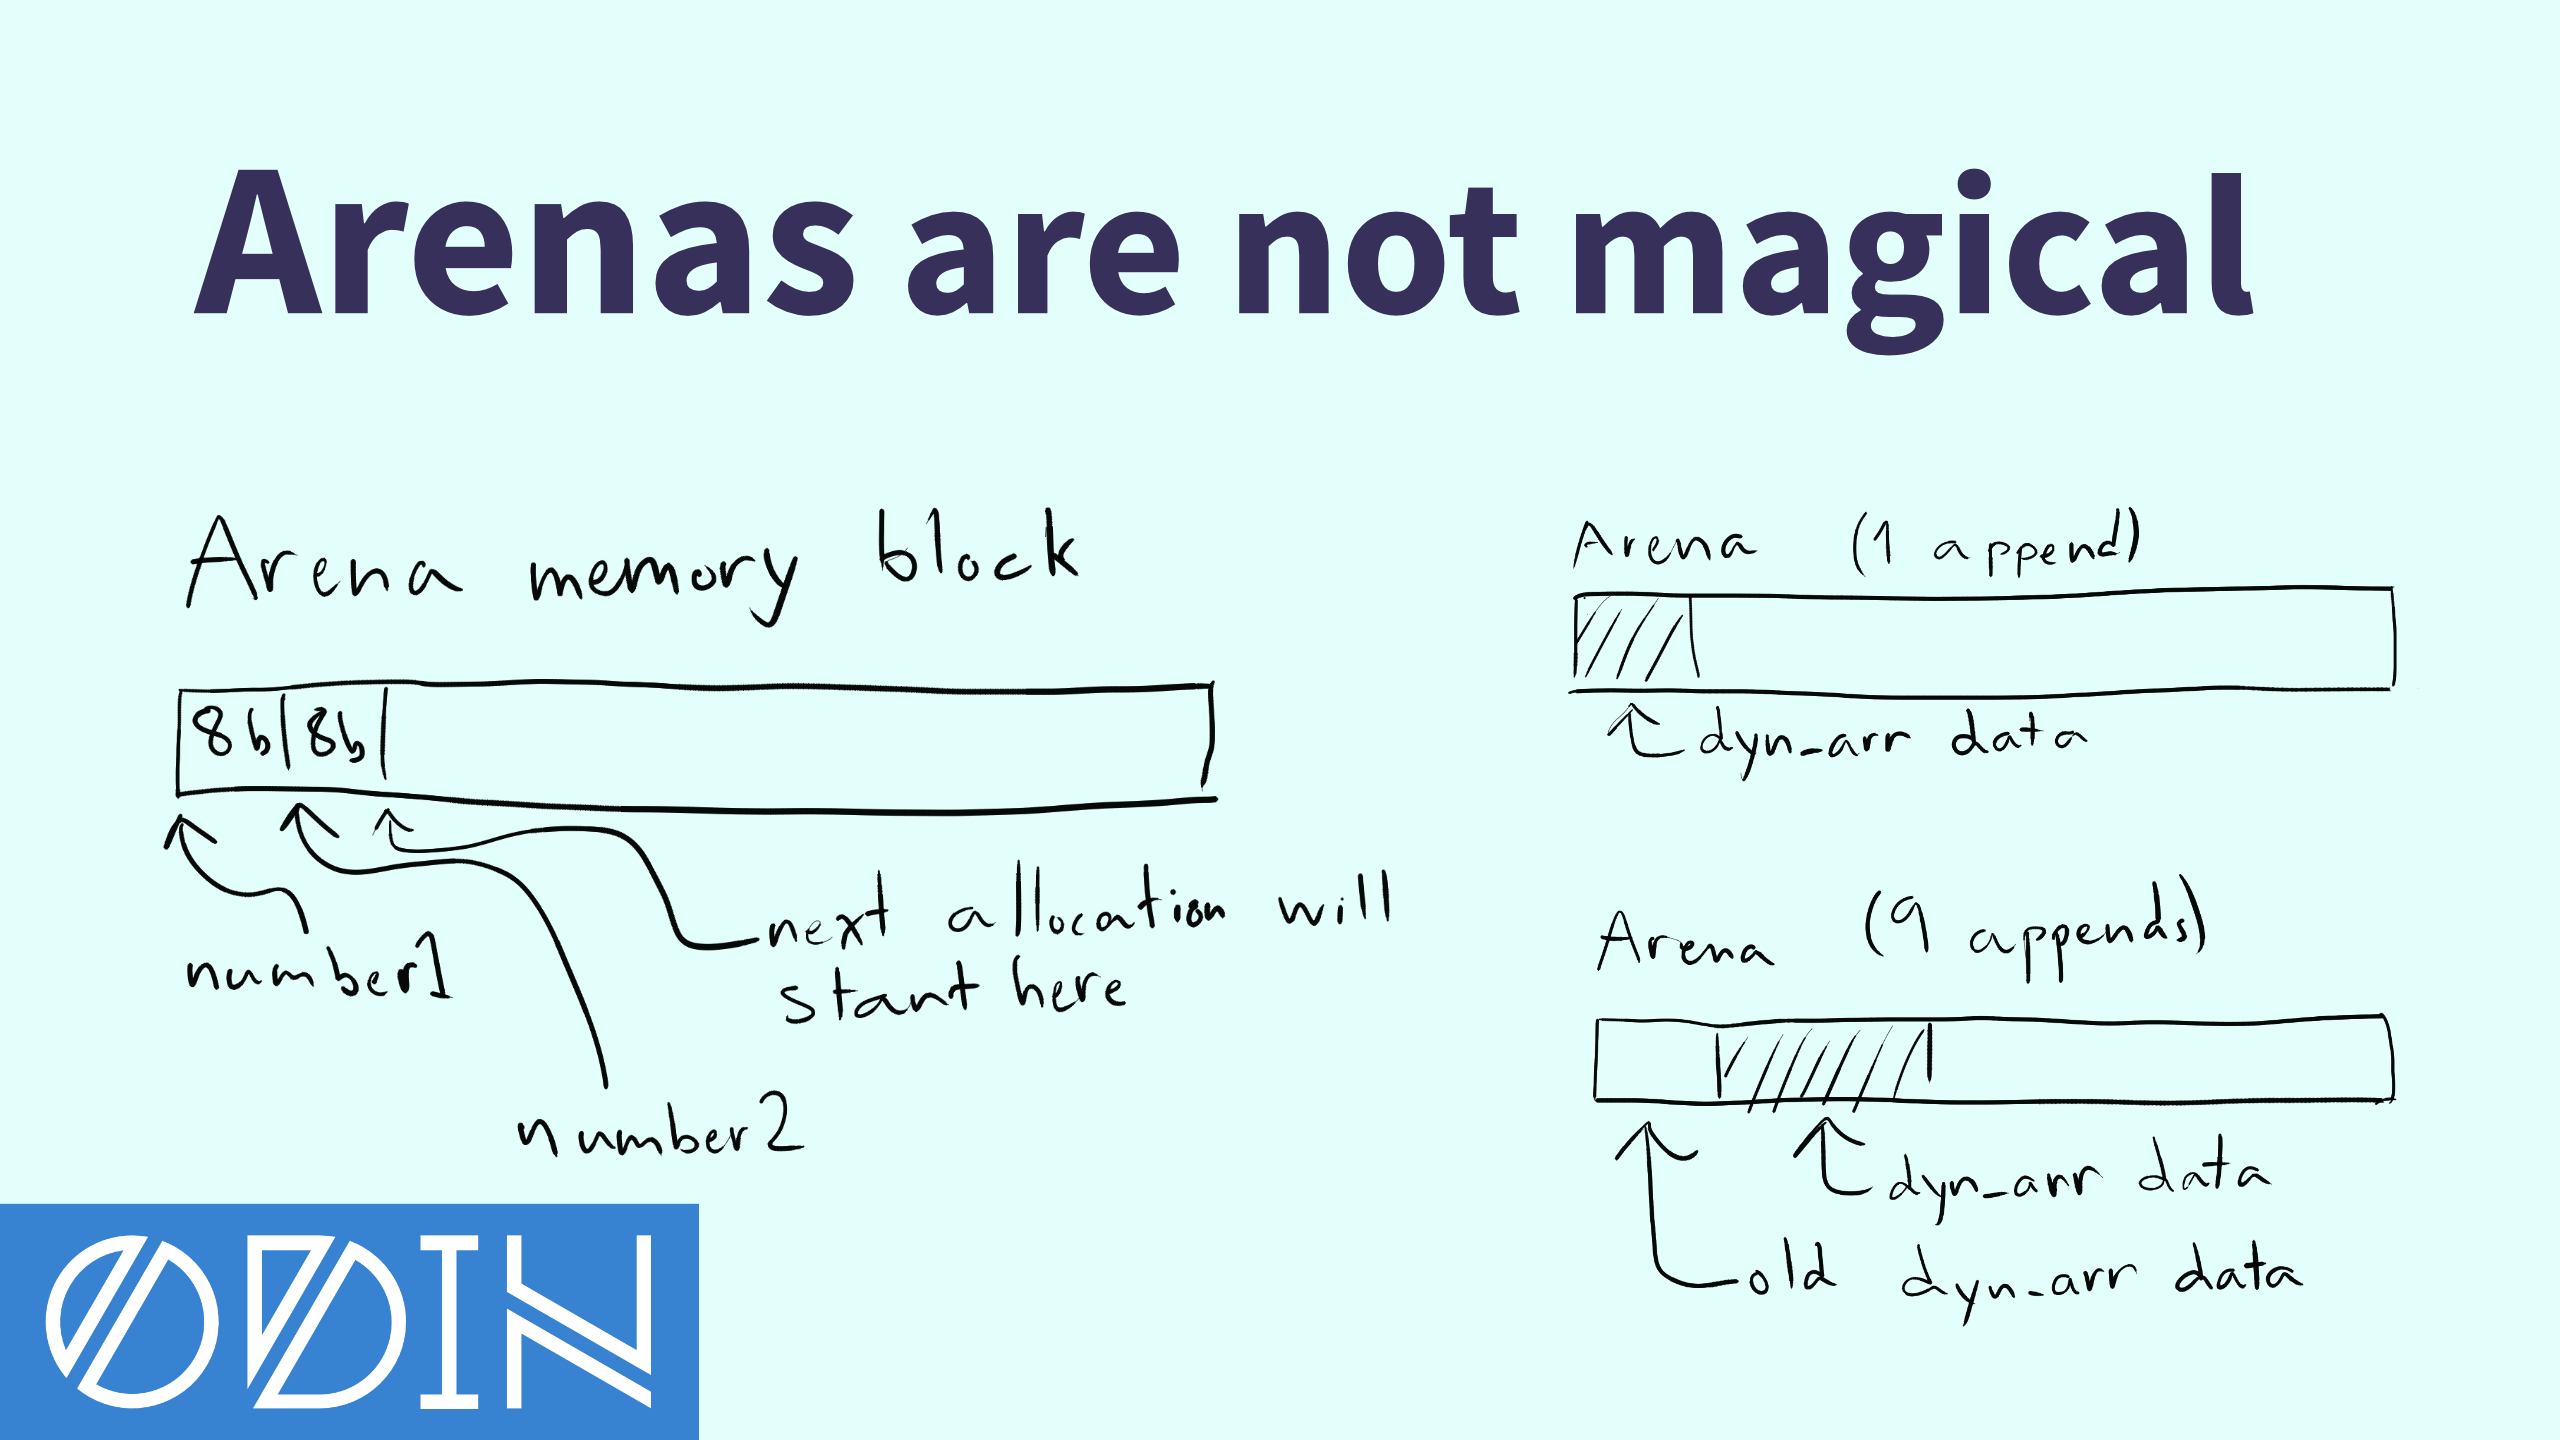 Arenas are not magical
Arena memory block
8b 8b
number1
number2
next allocation will
start here
Arena (1 append)
dyn_arr data
Arena (9 appends)
dyn_arr data
old dyn_arr data
ODIN